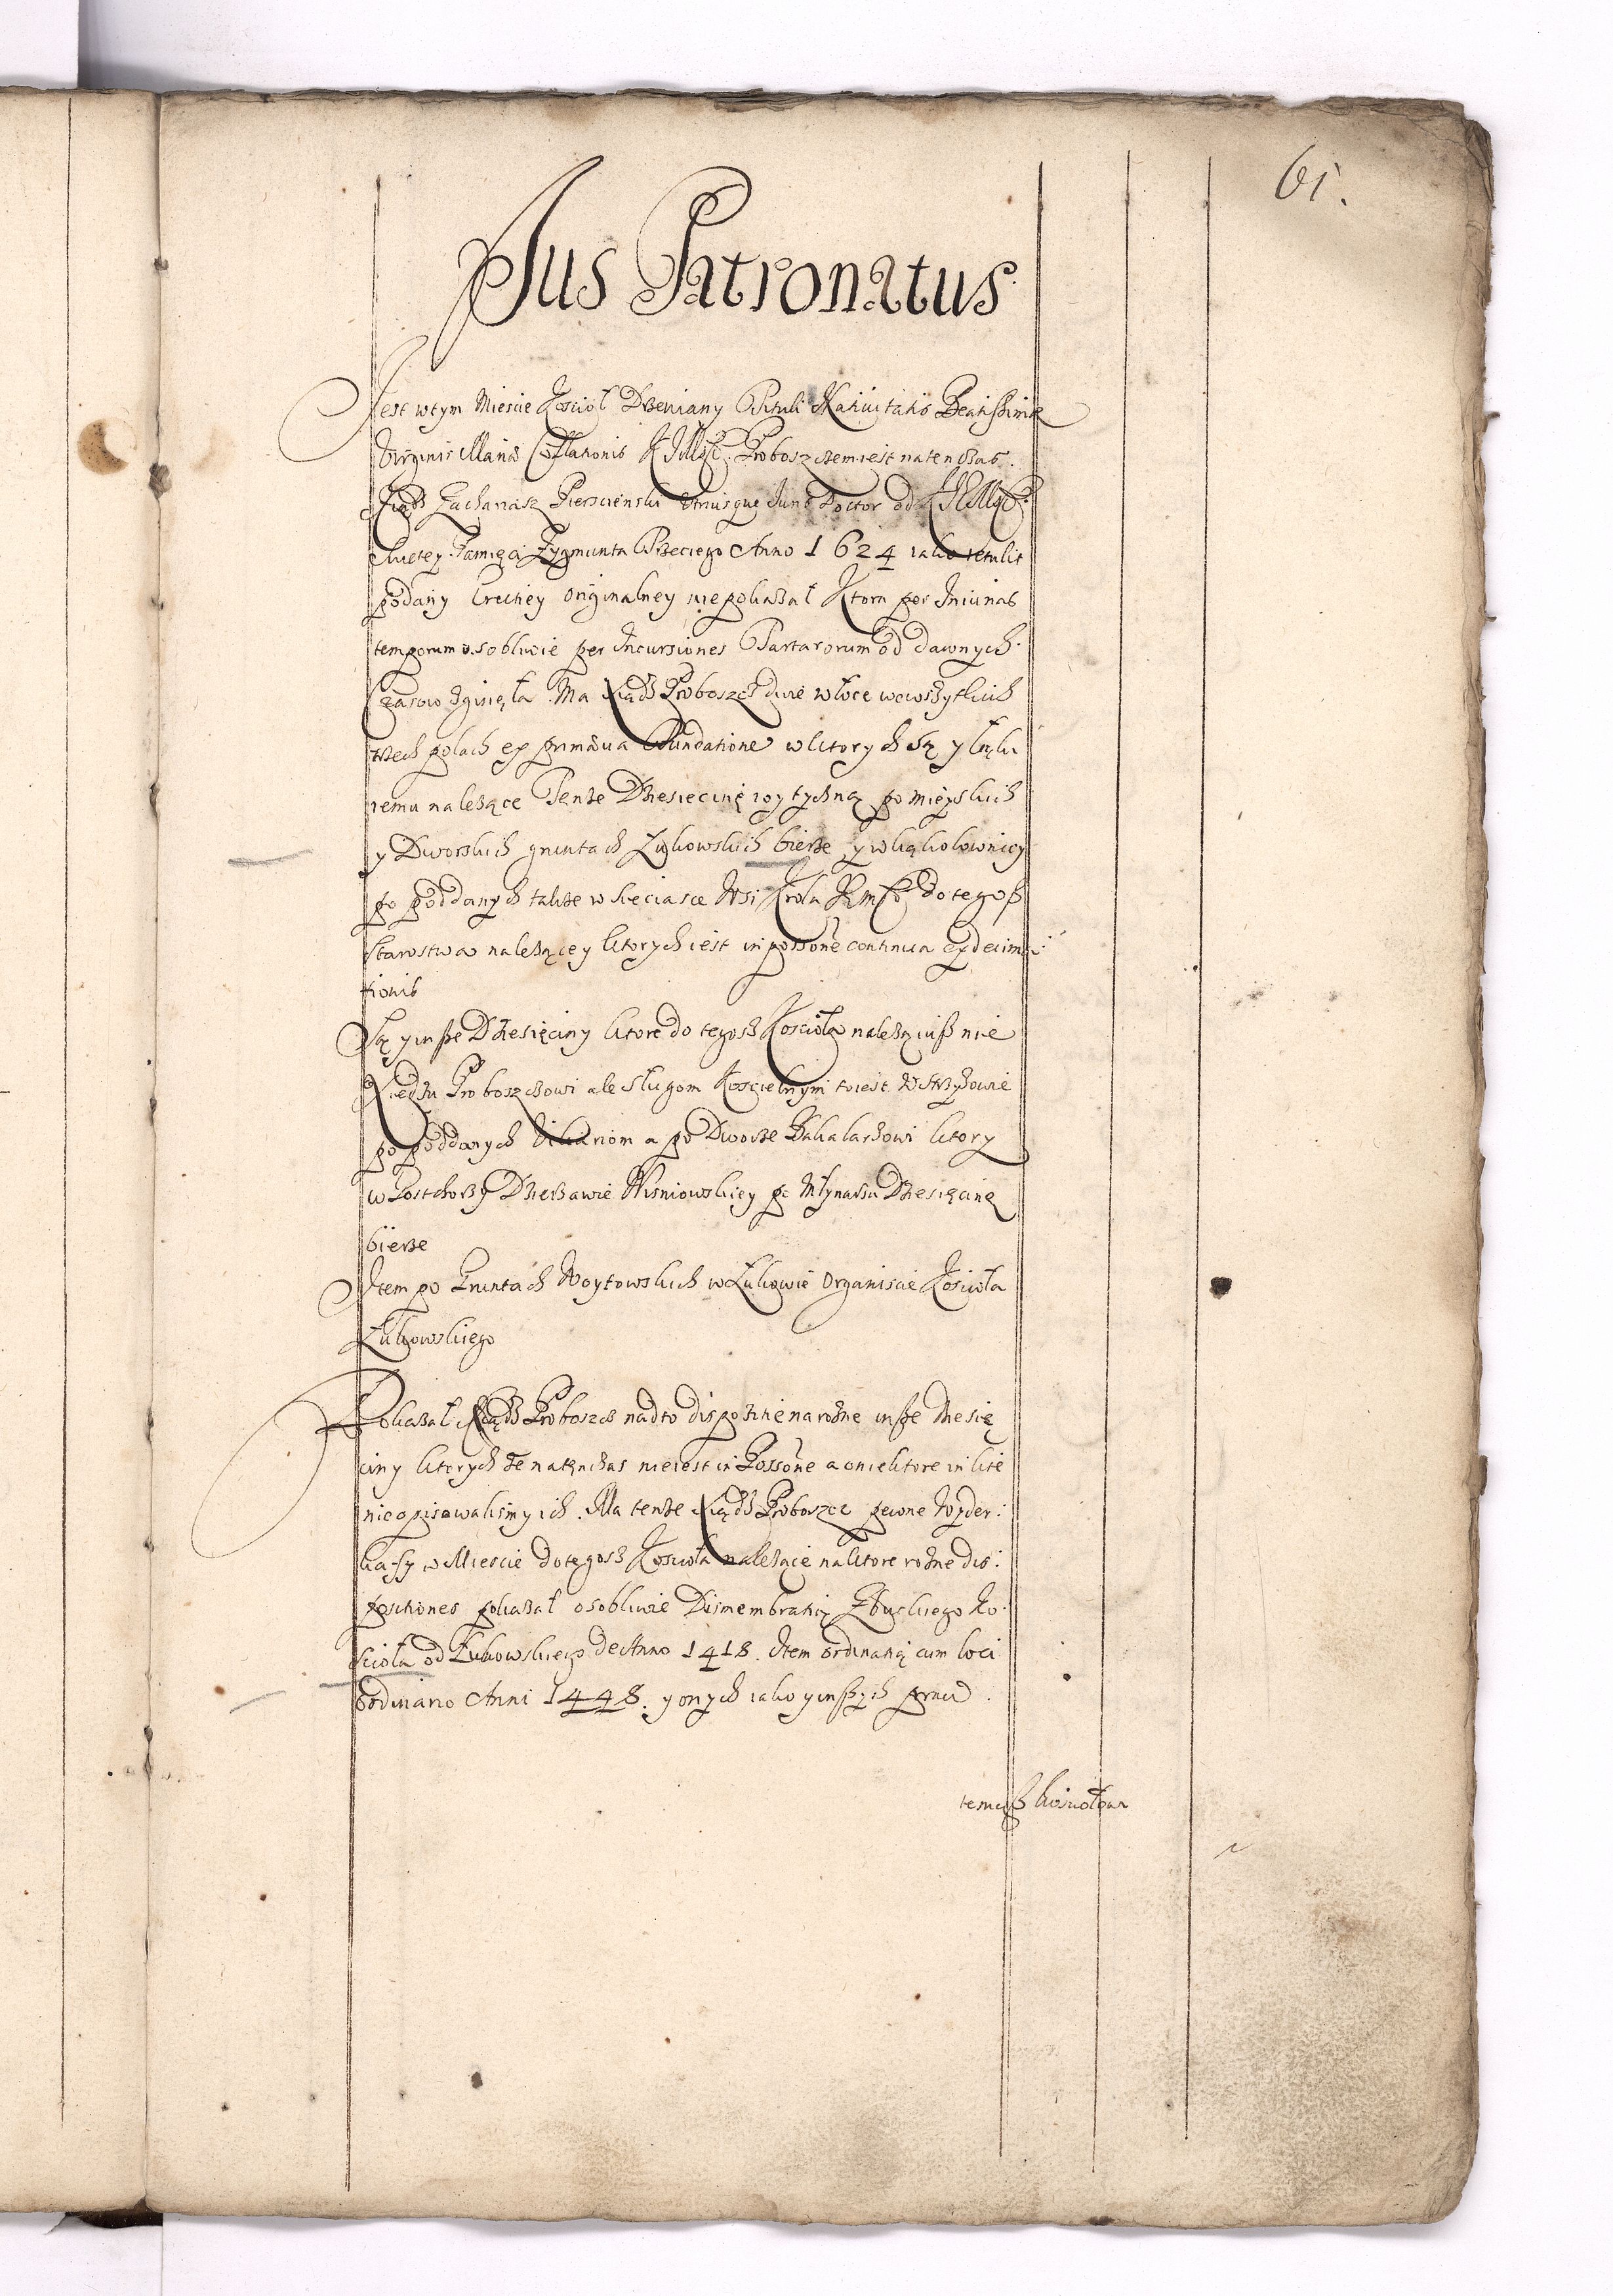 61.
Jus Patronatus
Jest wtym Miescie Kosciół Drzewiany Tituli Natiuitatis Beatissimæ
Virginis Mariæ Collationis KJMSCi. Proboszczem iest natenczas
Xiądz Zachariasz Pierscienski Utriusque Juris Doctor od KJEMSCi.
Swietey Pamięci Zygmunta Trzeciego Anno 1624 iako retulit
podany Erectiey originalney niepokazał Ktora per Iniurias
temporum osobliwie per Incursiones Tartarorum od dawnych
Czasow zginęła. Ma Xiądz Proboszcz dwie włoce wewszytkich
trzech polach ex primæua Fundatione wktorych są y łąki
iemu nalezące Tenze Dziesięcinę wytyczną po mieyskich
y Dworskich gruntach Łukowskich bierze y
po poddanych takze w Wsi Krola JEmSCi do tegoß
Starostwa nalezącey ktorych iest in possone continua exdecima:
tionis
Są y inße Dziesięciny ktore do tegosz Kościoła nalezą iuß nie
Xiędzu Proboszczowi ale sługom Koscielnym toiest w Strzyżowie
po poddanych Vikariom a po Dworze Bakalarzowi ktory
w Dzierzawie Wisniowskiey po Młynarzu Dziesięcinę
bierze
Item po Gruntach Woytowskich w Łukowie Organiscie Kościoła
Łukowskiego
Pokazał Xiądz Proboszcz nadto dispozitie na rożne inße dziesię
ciny ktorych ze natęnczas nieiest in Possone a oniektore in lite
nieopisowalismy ich. Ma tenże Xiądz Proboszcz pewne Wyder:
kaffy w Miescie dotegosz Kościoła nalezące naktore rożne dis:
positiones pokazał osobliwie Dismembratią Zbuckiego Ko
scioła od Łukowskiego de Anno 1418. Item ordinatią cum loci
ordinario Anni 1448. y onych iako y inßych praw
temuß kosciołowi